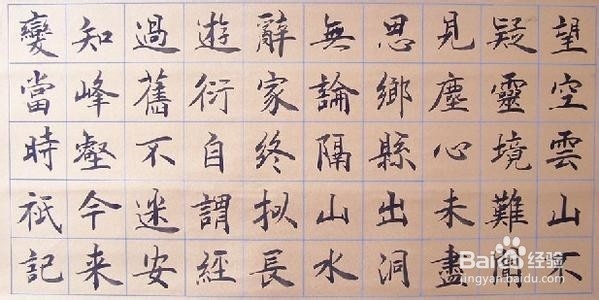 望空雲山不
疑靈境難聞
見塵心未盡
思鄉縣出洞
無論隔山水
辭家終拟長
遊衍自謂經
過舊不迷安
知峰壑今来
變當時祇記
Baidu经验
jingyan.baidu.com